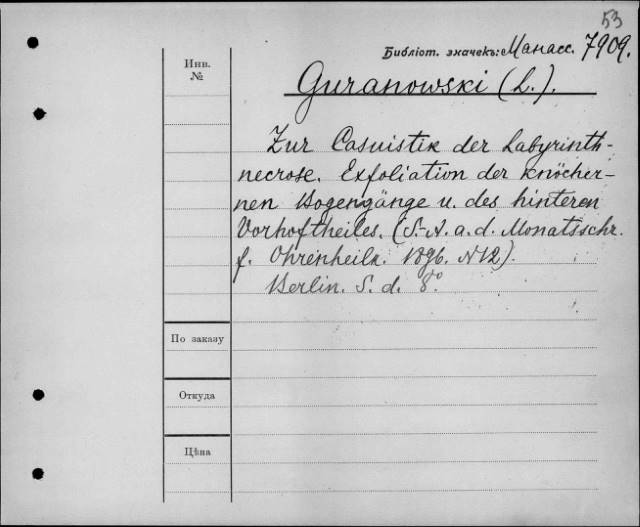 53
Библіот. значекъ: Манасс. 7909.
Инв.
№
Guranowski (L.).
Zur Casuistik der Labyrinth-
necrose. Exfoliation der knöcher-
nen Bogengänge u. des hinteren
Vorhoftheiles. (S.-A. a. d. Monatsschr.
f. Ohrenheilk. 1896. N12).
Berlin. S. d. 8°
По заказу
Откуда
Цѣна